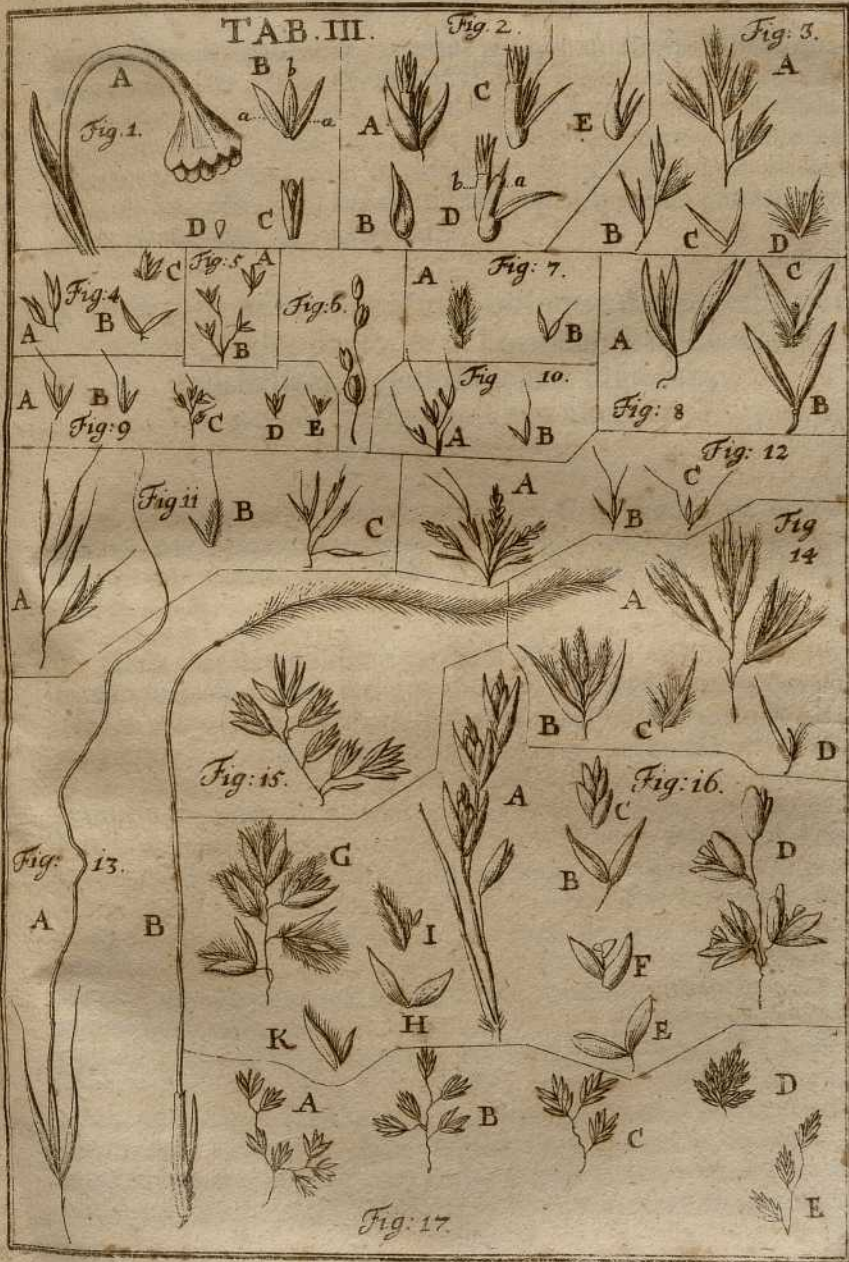 TAB. III.
Fig. 1.
A
B b
a a
C
D
Fig. 2.
A
B
C
D
b a
E
Fig: 3.
A
B
C
D
Fig: 4
A
B
C
Fig: 5
A
B
Fig: 6.
Fig: 7.
A
B
Fig: 8
A
B
C
Fig: 9
A
B
C
D
E
Fig 10.
A
B
Fig ii
A
B
C
Fig: 12
A
B
C
Fig: 13.
A
B
Fig
14
A
B
C
D
Fig: i5.
Fig: i6.
A
B
C
D
E
F
G
H
I
K
Fig: 17.
A
B
C
D
E